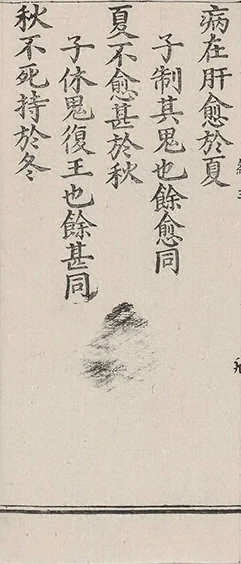 病在肝愈於夏
子制其鬼也餘愈同
夏不愈甚於秋
子休鬼復王也餘甚同
秋不死持於冬